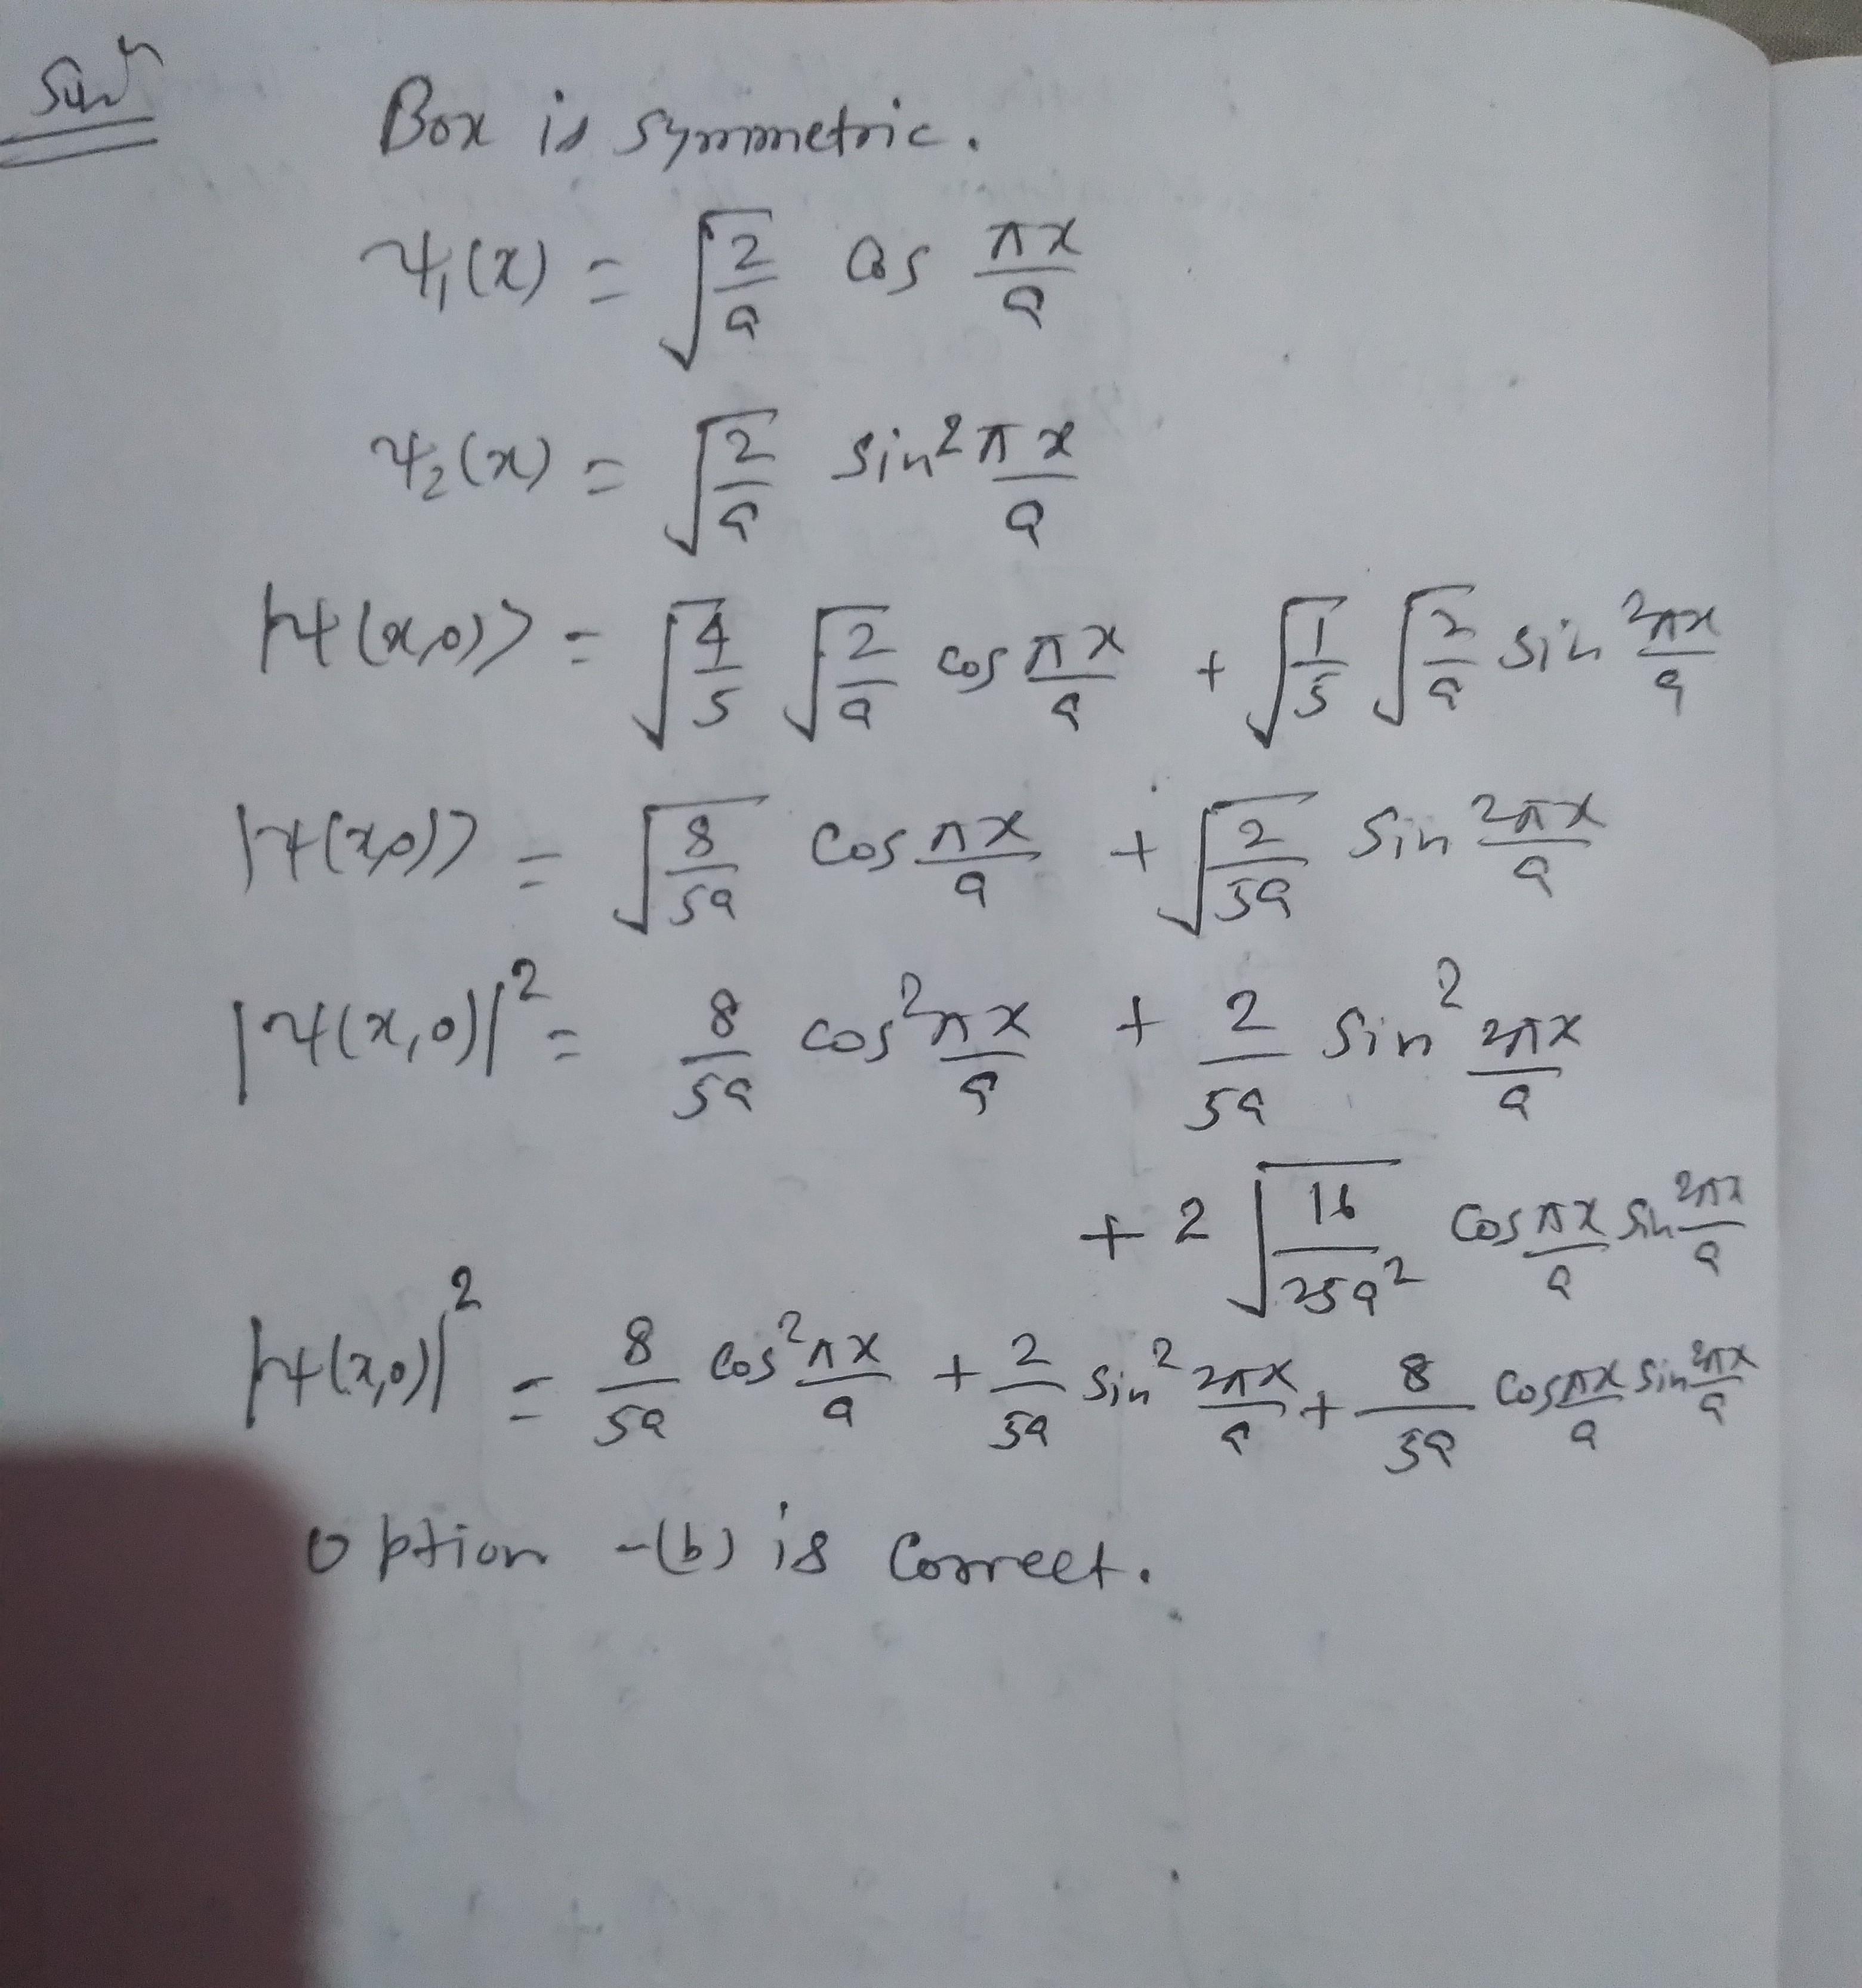 Soln
Box is symmetric.
ψ₁(x) = √(2/a) cos πx/a
ψ₂(x) = √(2/a) sin 2πx/a
|ψ(x,0)> = √(4/5) √(2/a) cos πx/a + √(1/5) √(2/a) sin 2πx/a
|ψ(x,0)> = √(8/5a) cos πx/a + √(2/5a) sin 2πx/a
|ψ(x,0)|² = 8/5a cos² πx/a + 2/5a sin² 2πx/a
+ 2 √(16/25a²) cos πx/a sin 2πx/a
|ψ(x,0)|² = 8/5a cos² πx/a + 2/5a sin² 2πx/a + 8/5a cos πx/a sin 2πx/a
Option -(b) is Correct.